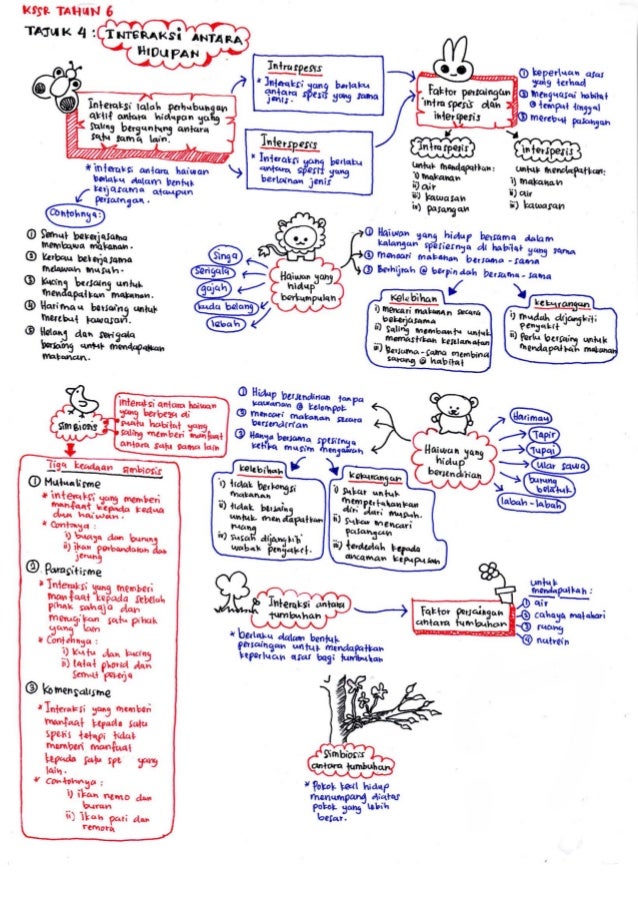 KSSR TAHUN 6
TAJUK 4 :
INTERAKSI ANTARA
HIDUPAN
Interaksi ialah perhubungan
aktif antara hidupan yang
saling bergantung antara
satu sama lain.
* interaksi antara haiwan
berlaku dalam bentuk
kerjasama ataupun
persaingan.
Contohnya:
① Semut bekerjasama
membawa makanan.
② Kerbau bekerjasama
melawan musuh.
③ Kucing bersaing untuk
mendapatkan makanan.
④ Harimau bersaing untuk
merebut kawasan.
⑤ Helang dan serigala
bersaing untuk mendapatkan
makanan.
Intraspesis
* Interaksi yang berlaku
antara spesis yang sama
jenis.
Interspesis
* Interaksi yang berlaku
antara spesis yang
berlainan jenis
Faktor persaingan
intraspesis dan
interspesis
① keperluan asas
yang terhad
② menguasai habitat
@ tempat tinggal
③ merebut pasangan
Intraspesis
untuk mendapatkan:
i) makanan
ii) air
iii) kawasan
iv) pasangan
interspesis
untuk mendapatkan:
i) makanan
ii) air
iii) kawasan
Haiwan yang
hidup
berkumpulan
Singa
Serigala
gajah
kuda belang
lebah
① Haiwan yang hidup bersama dalam
kalangan spesiesnya di habitat yang sama
② mencari makanan bersama-sama
③ Berhijrah @ berpindah bersama-sama
Kelebihan
i) mencari makanan secara
bekerjasama
ii) saling membantu untuk
memastikan keselamatan
iii) Bersama-sama membina
sarang @ habitat
kekurangan
i) mudah dijangkiti
penyakit
ii) Perlu bersaing untuk
mendapatkan makanan
Simbiosis
interaksi antara haiwan
yang berbeza di
suatu habitat yang
saling memberi manfaat
antara satu sama lain
Tiga keadaan simbiosis
① Mutualisme
* interaksi yang memberi
manfaat kepada kedua
dua haiwan.
* Contonya :
i) buaya dan burung
ii) ikan perbandaran dan
jerung
② Parasitisme
* Interaksi yang memberi
manfaat kepada sebelah
pihak sahaja dan
merugikan satu pihak
yang lain
* Contohnya :
i) kutu dan kucing
ii) lalat phorid dan
semut pekerja
③ Komensalisme
* Interaksi yang memberi
manfaat kepada satu
spesis tetapi tidak
memberi manfaat
kepada satu spe yang
lain.
* Contohnya :
i) ikan nemo dan
buran
ii) Ikan pari dan
remora
① Hidup bersendirian tanpa
kawanan @ kelompok
② mencari makanan secara
bersendirian
③ Hanya bersama spesisnya
ketika musim mengawan
Haiwan yang
hidup
bersendirian
Harimau
Tapir
Tupai
Ular sawa
burung
belatuk
labah-labah
kelebihan
i) tidak berkongsi
makanan
ii) tidak bersaing
untuk mendapatkan
ruang
iii) susah dijangkiti
wabak penyakit.
Kekurangan
i) Sukar untuk
mempertahankan
diri dari musuh.
ii) sukar mencari
pasangan
iii) terdedah kepada
ancaman kepupusan
Interaksi antara
tumbuhan
* berlaku dalam bentuk
persaingan untuk mendapatkan
keperluan asas bagi tumbuhan
Faktor persaingan
antara tumbuhan
untuk
mendapatkan :
① air
② cahaya matahari
③ ruang
④ nutrein
Simbiosis
antara tumbuhan
* Pokok kecil hidup
menumpang diatas
pokok yang lebih
besar.